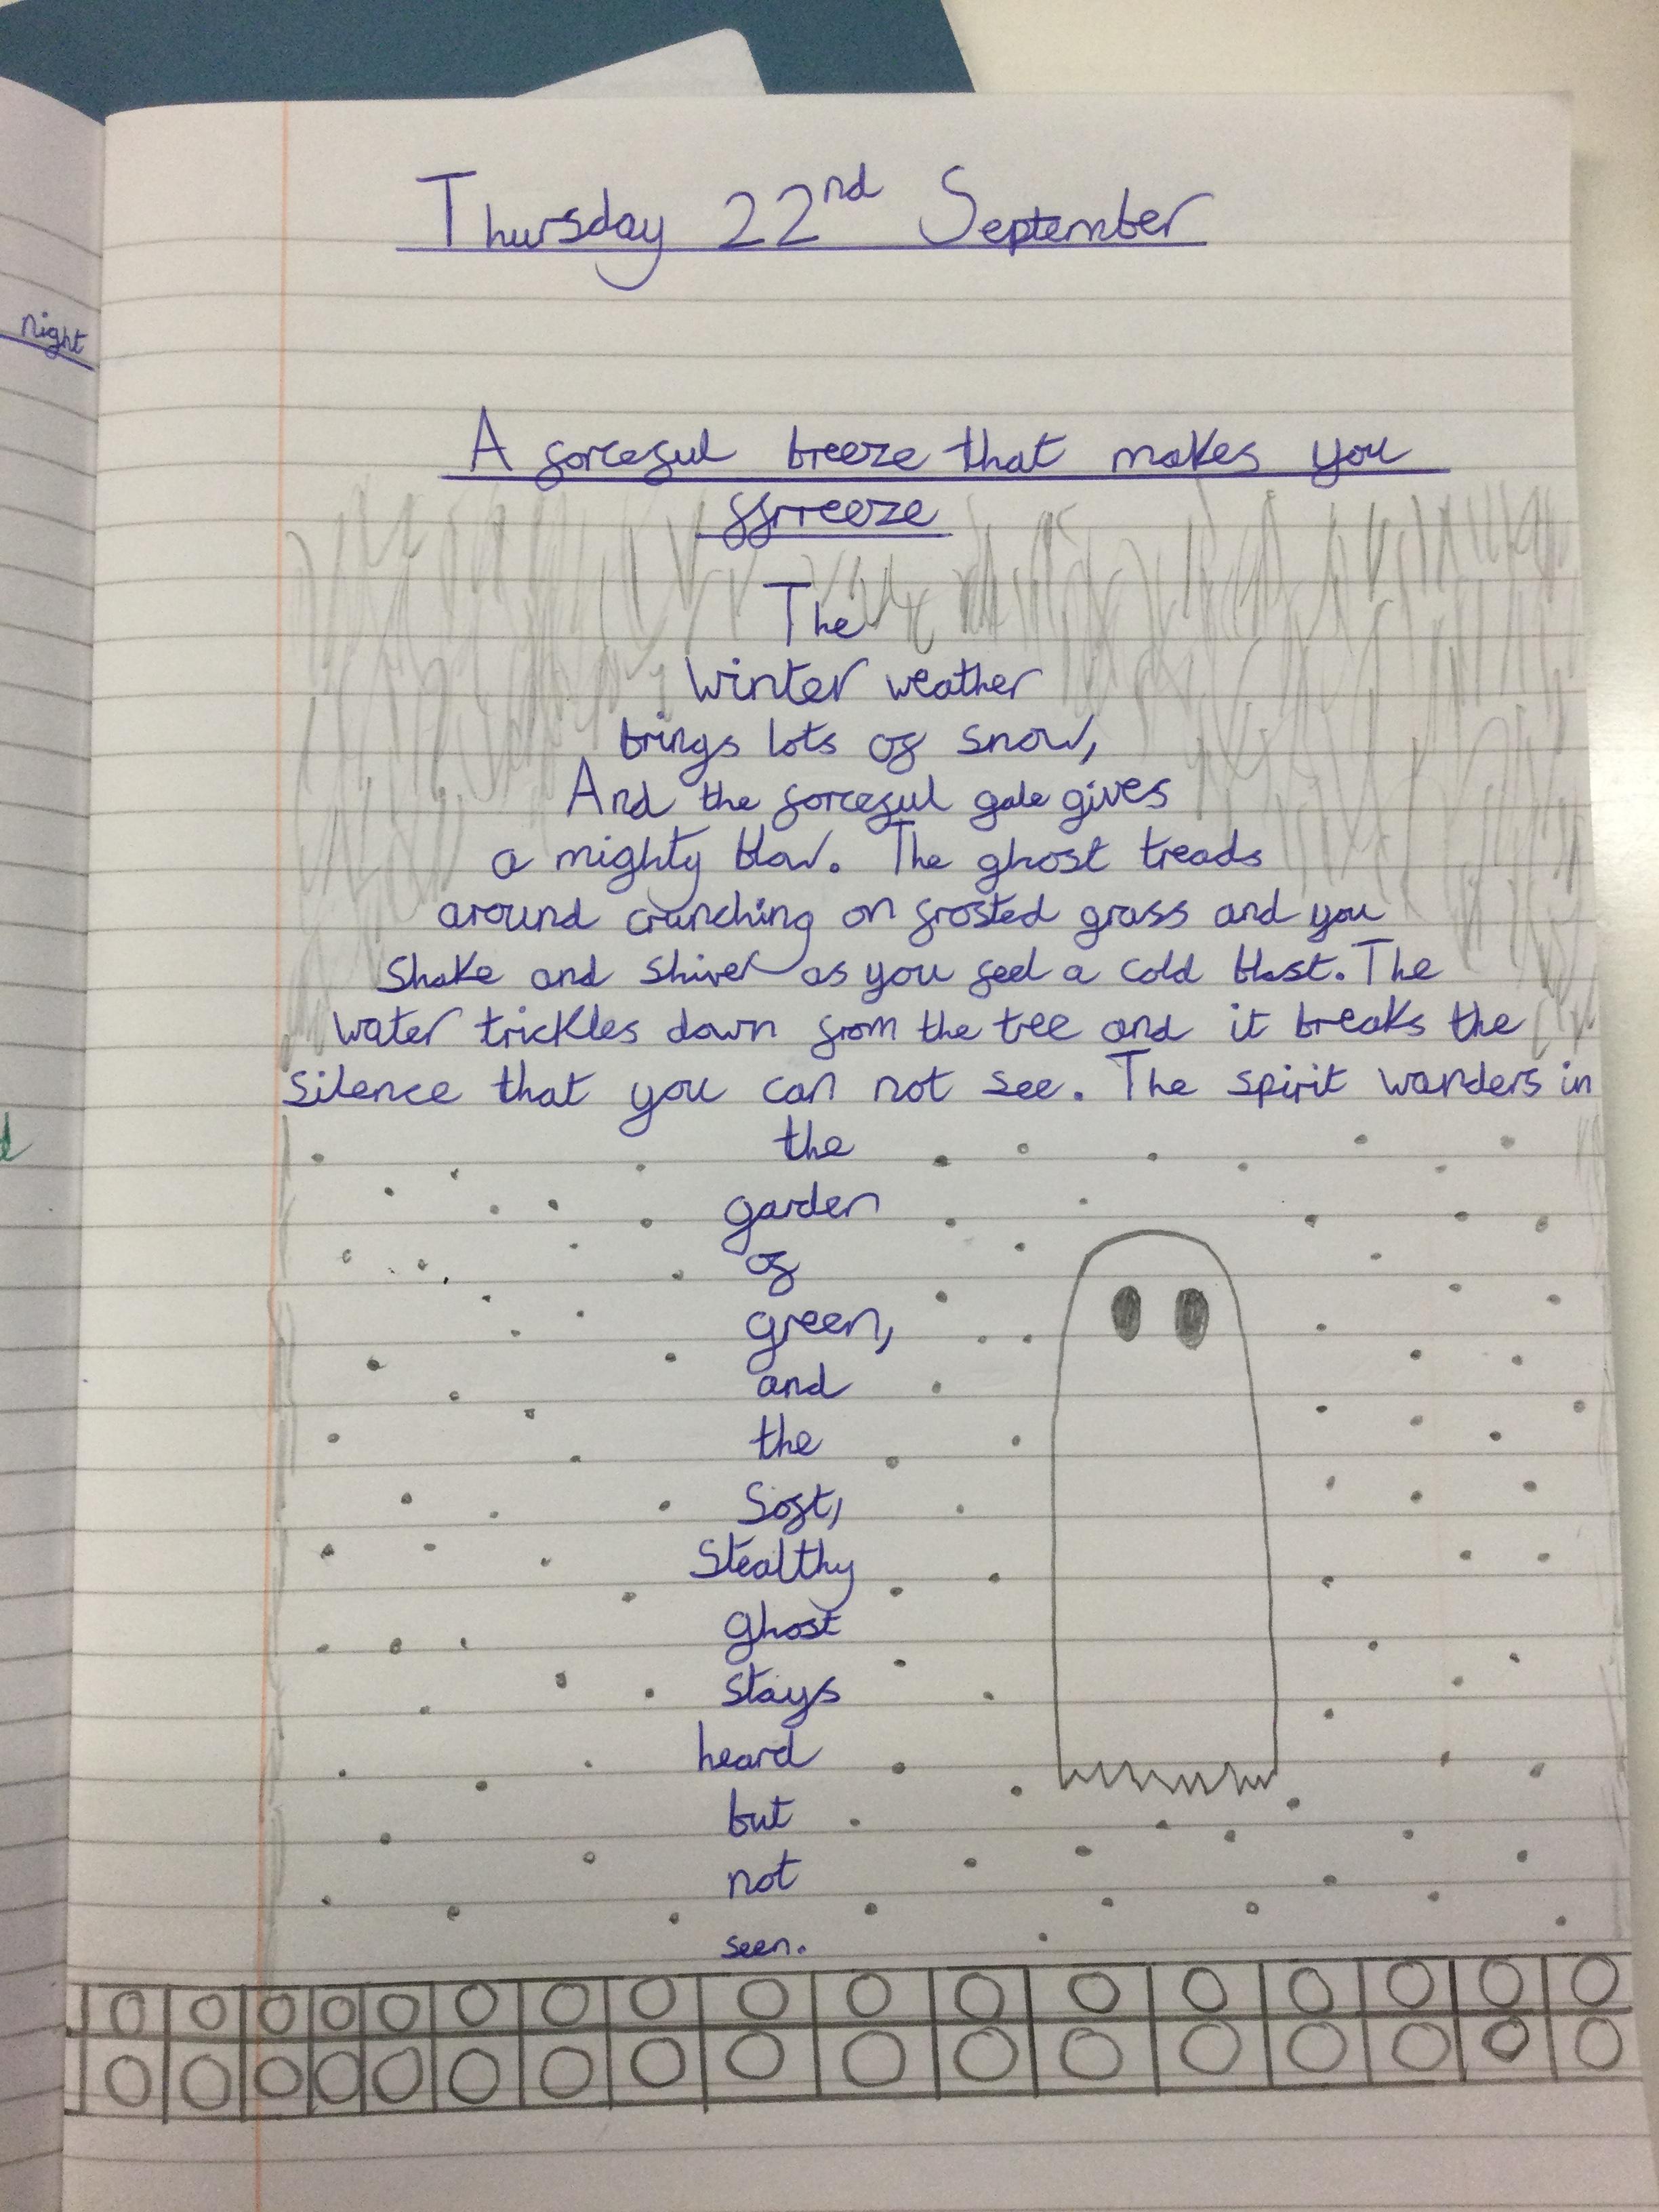 Thursday 22nd September
night
A forceful breeze that makes you
ffrreeze
The
winter weather
brings lots of snow,
And the forceful gale gives
a mighty blow. The ghost treads
around crunching on frosted grass and you
shake and shiver as you feel a cold blast. The
water trickles down from the tree and it breaks the
silence that you can not see. The spirit wanders in
the
garden
of
green,
and
the
Soft,
Stealthy
ghost
stays
heard
but
not
seen.